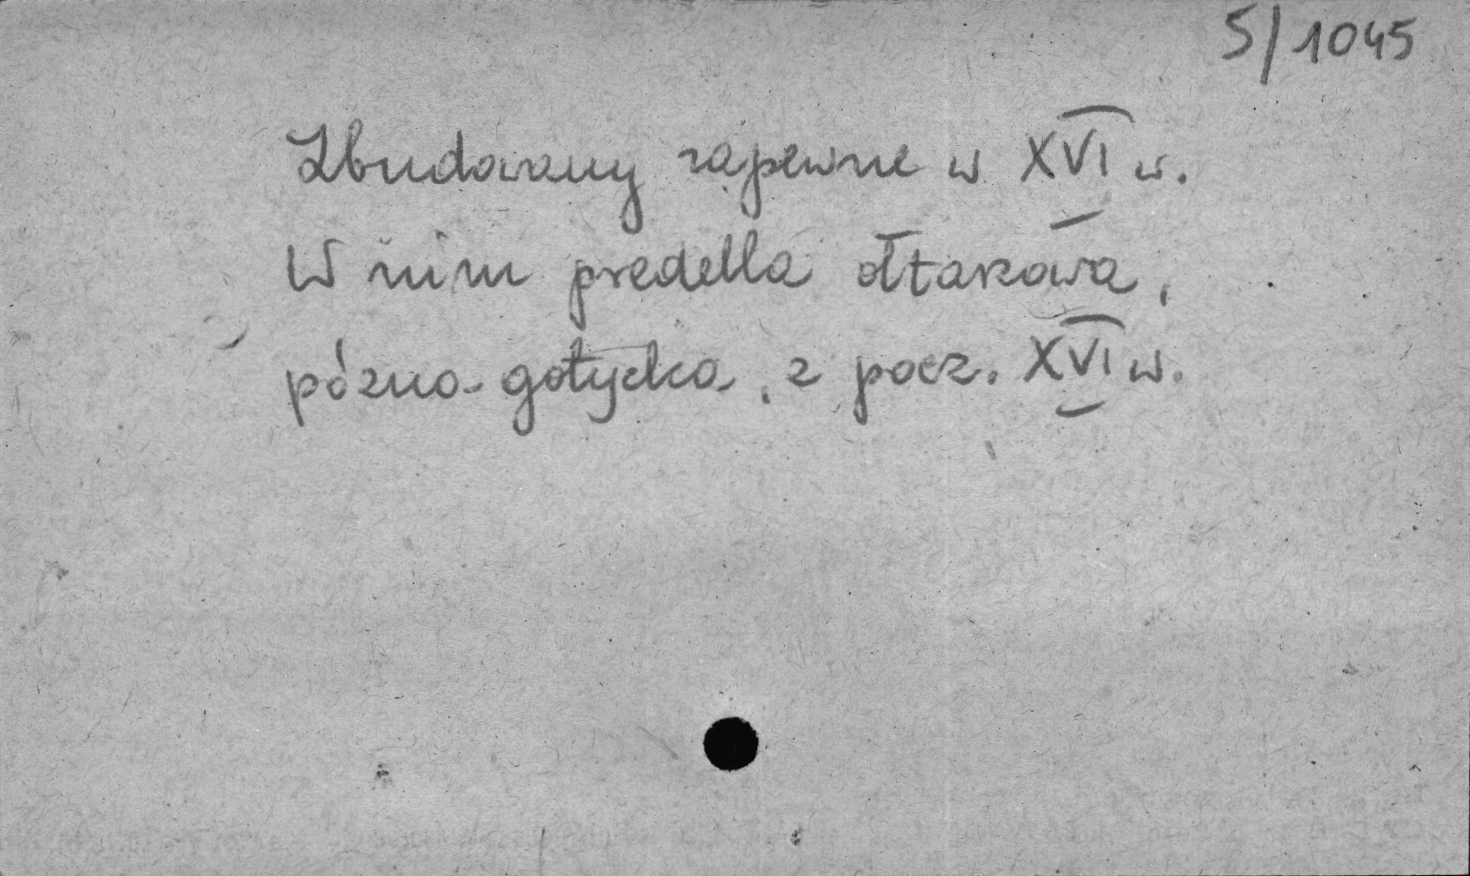 5/1045
Zbudowany zapewne w XVI w.
W nim predella ołtarzowa,
pózno-gotycka, z pocz. XVI w.